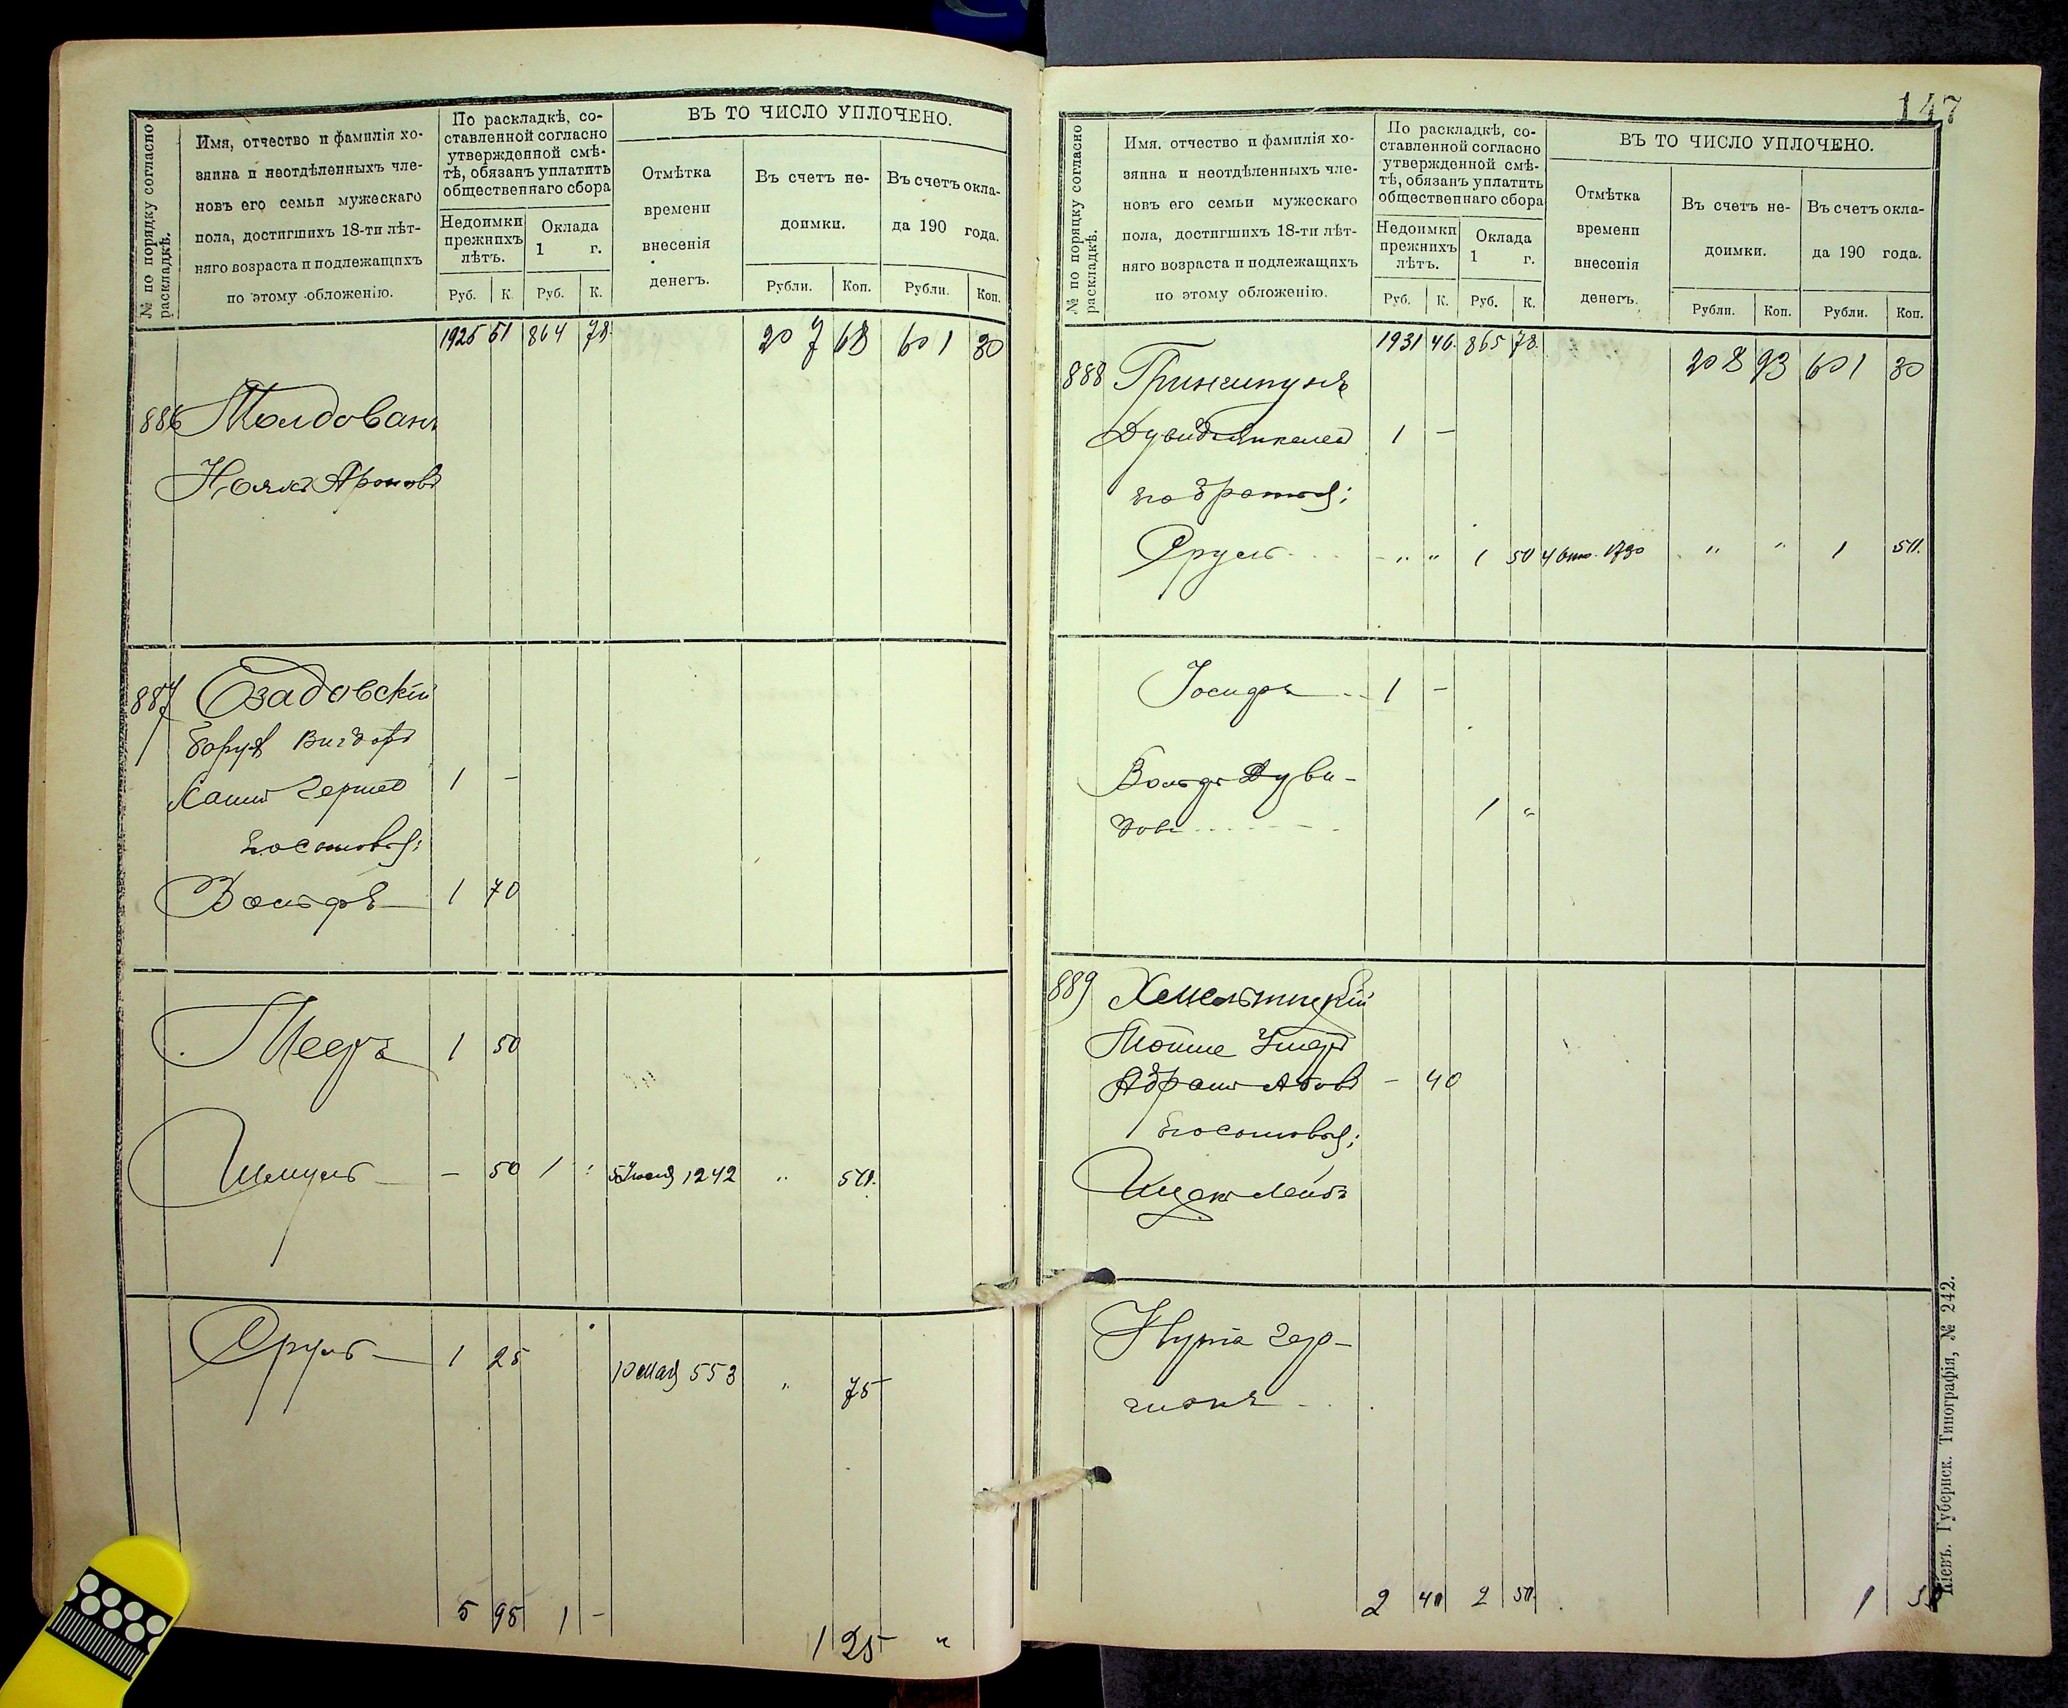 № по порядку согласно раскладкѣ.
Имя, отчество и фамилія хо-
зяина и неотдѣленныхъ чле-
новъ его семьи мужескаго
пола, достигшихъ 18-ти лѣт-
няго возраста и подлежащихъ
по этому обложенію.
По раскладкѣ, со-
ставленной согласно
утвержденной смѣ-
тѣ, обязанъ уплатить
общественнаго сбора
Недоимки
прежнихъ
лѣтъ.
Оклада
1 г.
Руб. К. Руб. К.
ВЪ ТО ЧИСЛО УПЛОЧЕНО.
Отмѣтка
времени
внесенія
денегъ.
Въ счетъ не-
доимки.
Въ счетъ окла-
да 190 года.
Рубли. Коп. Рубли. Коп.
1925 51 864 78 207 68 601 30
886 Молдованъ
Ароновъ
887 Озадовскій
Борухъ Вигдоръ
Хаимъ Гершко 1 -
его сыновья;
Вольфъ 1 70
Мееръ 1 50
Шмуль - 50 1 5 Іюля 1242 " 50
Сруль 1 25 10 Мая 553 " 75
5 95 1 -
1 25 "
147
№ по порядку согласно раскладкѣ.
Имя, отчество и фамилія хо-
зяина и неотдѣленныхъ чле-
новъ его семьи мужескаго
пола, достигшихъ 18-ти лѣт-
няго возраста и подлежащихъ
по этому обложенію.
По раскладкѣ, со-
ставленной согласно
утвержденной смѣ-
тѣ, обязанъ уплатить
общественнаго сбора
Недоимки
прежнихъ
лѣтъ.
Оклада
1 г.
Руб. К. Руб. К.
ВЪ ТО ЧИСЛО УПЛОЧЕНО.
Отмѣтка
времени
внесенія
денегъ.
Въ счетъ не-
доимки.
Въ счетъ окла-
да 190 года.
Рубли. Коп. Рубли. Коп.
1931 46 865 78 208 93 601 30
888 Гриншпунъ
Дувидъ Янкелев 1 -
его братья;
Сруль " " 1 50 4 1790 " " 1 50
Іосифъ 1 -
Вольфъ Дуви-
довъ 1 "
889 Хмельницкій
Мошко
Абрамъ - 40
его сыновья;
Ицекъ Лейбъ
Нута Гер-
шонъ
2 40 2 50 1 50
Кіевъ. Губернск. Типографія, № 242.